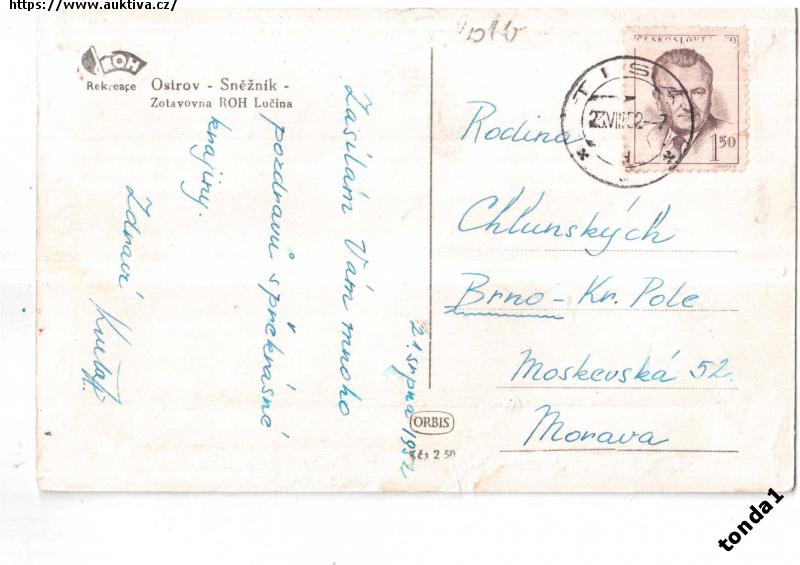 https://www.auktiva.cz/
ROH
Rekreace
Ostrov - Sněžník -
Zotavovna ROH Lučina
Zasílám Vám mnoho
pozdravů s překrásné
krajiny.
Zdraví
21 srpna 1952
ČESKOSLOVE
1 50
TISÁ
23.VIII.52-7
Rodina
Chlunských
Brno-Kr. Pole
Moskevská 52.
Morava
ORBIS
Kčs 2 50
tonda1